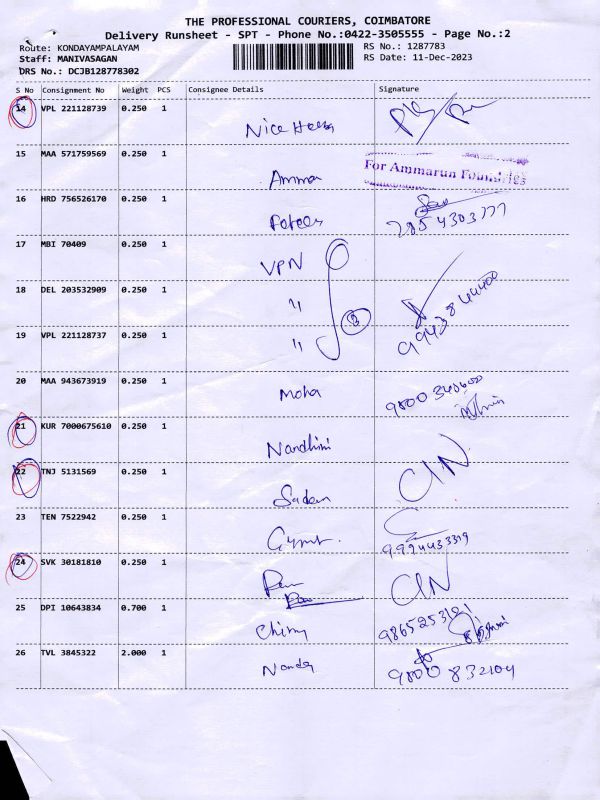 THE PROFESSIONAL COURIERS, COIMBATORE
Delivery Runsheet - SPT - Phone No.:0422-3505555 - Page No.:2
Route: KONDAYAMPALAYAM RS No.: 1287783
Staff: MANIVASAGAN RS Date: 11-Dec-2023
DRS No.: DCJB128778302
S No Consignment No Weight PCS Consignee Details Signature
14 VPL 221128739 0.250 1
Nice
15 MAA 571759569 0.250 1
Amma For Ammarun Foundries
16 HRD 756526170 0.250 1
7854303777
17 MBI 70409 0.250 1
VPN
18 DEL 203532909 0.250 1
" 9943844400
19 VPL 221128737 0.250 1
" 3
20 MAA 943673919 0.250 1
Moha
21 KUR 7000675610 0.250 1
Nandhini
22 TNJ 5131569 0.250 1
C/N
23 TEN 7522942 0.250 1
9994433319
24 SVK 30181810 0.250 1
C/N
25 DPI 10643834 0.700 1
Chinny
26 TVL 3845322 2.000 1
Nanda 9800832104